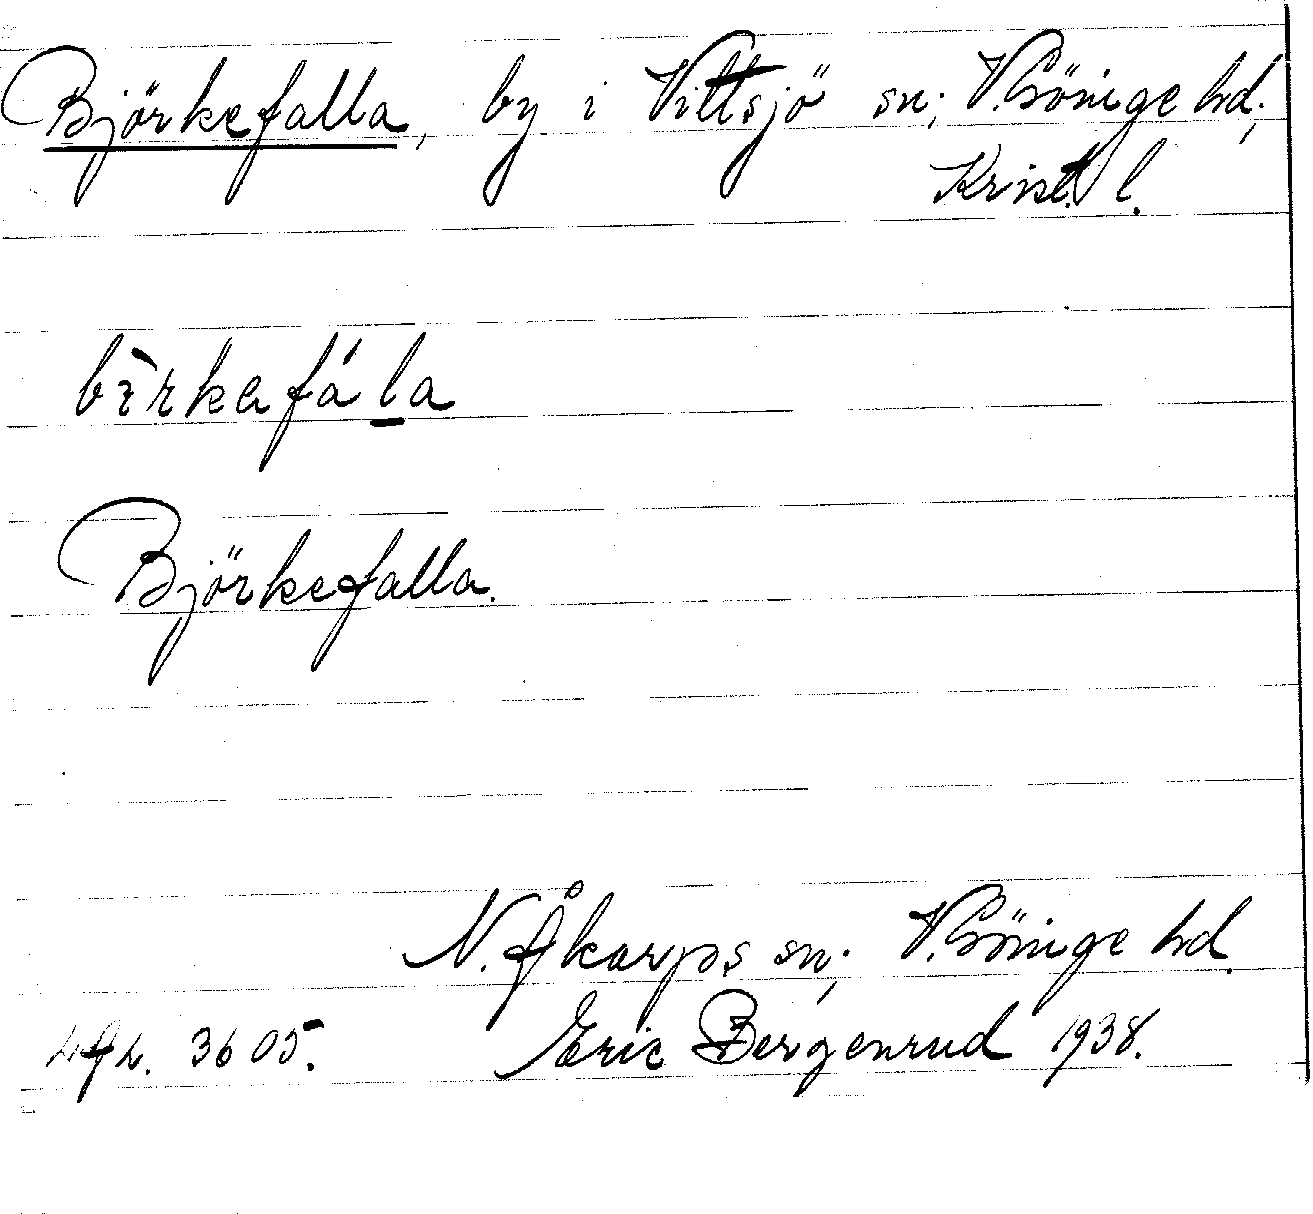 Björkefalla, by i Vittsjö sn; V. Göinge hd;
Krist. l.
bìrkafá la
Björkefalla.
N. Åkarps sn; V. Göinge hd.
3605. Eric Bergenrud 1938.